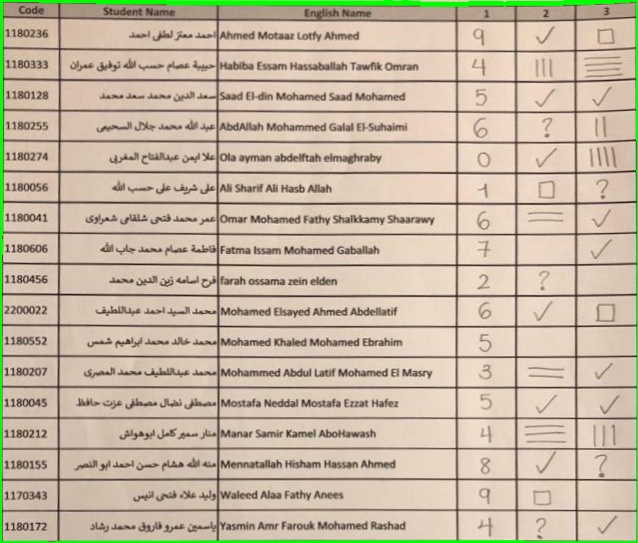 Code Student Name English Name 1 2 3
1180236 احمد معتز لطفى احمد Ahmed Motaaz Lotfy Ahmed 9 ✓ □
1180333 حبيبة عصام حسب الله توفيق عمران Habiba Essam Hassaballah Tawfik Omran 4 ||| ☰
1180128 سعد الدين محمد سعد محمد Saad El-din Mohamed Saad Mohamed 5 ✓ ✓
1180255 عبد الله محمد جلال السحيمى AbdAllah Mohammed Galal El-Suhaimi 6 ? ||
1180274 علا ايمن عبدالفتاح المغربى Ola ayman abdelftah elmaghraby 0 ✓ ||||
1180056 على شريف على حسب الله Ali Sharif Ali Hasb Allah 1 □ ?
1180041 عمر محمد فتحى شلقامى شعراوى Omar Mohamed Fathy Shalkkamy Shaarawy 6 = ✓
1180606 فاطمة عصام محمد جاب الله Fatma Issam Mohamed Gaballah 7 ✓
1180456 فرح اسامه زين الدين محمد farah ossama zein elden 2 ?
2200022 محمد السيد احمد عبداللطيف Mohamed Elsayed Ahmed Abdellatif 6 ✓ □
1180552 محمد خالد محمد ابراهيم شمس Mohamed Khaled Mohamed Ebrahim 5
1180207 محمد عبداللطيف محمد المصرى Mohammed Abdul Latif Mohamed El Masry 3 = ✓
1180045 مصطفى نضال مصطفى عزت حافظ Mostafa Neddal Mostafa Ezzat Hafez 5 ✓ ✓
1180212 منار سمير كامل ابوهواش Manar Samir Kamel AboHawash 4 ☰ |||
1180155 منه الله هشام حسن احمد ابو النصر Mennatallah Hisham Hassan Ahmed 8 ✓ ?
1170343 وليد علاء فتحى انيس Waleed Alaa Fathy Anees 9 □
1180172 ياسمين عمرو فاروق محمد رشاد Yasmin Amr Farouk Mohamed Rashad 4 ? ✓